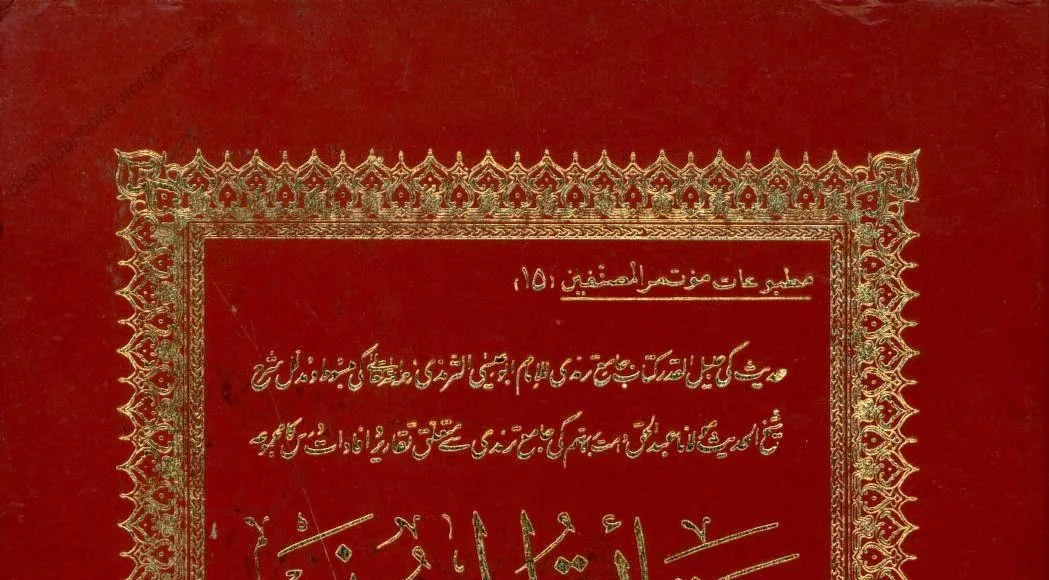 مطبوعات مؤتمر المصنفین (۱۵)
حدیث کی جلیل القدر کتاب جامع ترمذی للامام ابوعیسی الترمذی رحمہ اللہ تعالی کی مبسوط و مدلل شرح
شیخ الحدیث مولانا عبدالحق دامت برکاتہم کی جامع ترمذی سے متعلق تقاریر افادات درس کا مجموعہ